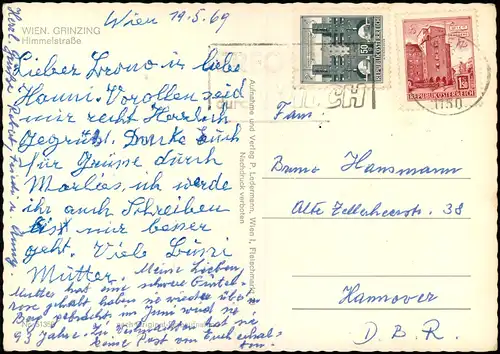 Wien 19.5.69
WIEN, GRINZING
Himmelstraße
Lieber Bruno u. liebe
Hanni. Vorollen seid
mir recht Herzlich
Gegrüßt. Danke Euch
für Grüße durch
Marlies, ich werde
ihr auch Schreiben
bis mir besser
geht. Viele Bussi
Mutter.
Meine Lieben,
Mutter hat eine schwere Gürtel-
rose gehabt haben sie wieder über
Berg gebracht im Juni wird sie
93 Jahre. Zu Weihnachten hat sie
keine Post von Euch erhal-
ten.
Herzl. Grüße
Aufnahme und Verlag P. Ledermann, Wien I, Fleischmarkt
Nachdruck verboten
50
REPUBLIK ÖSTERREICH
1.50
REPUBLIK ÖSTERREICH
1180
Fam.
Bruno Hansmann
Alte Zellerheerstr. 38
Hannover
D. B. R.